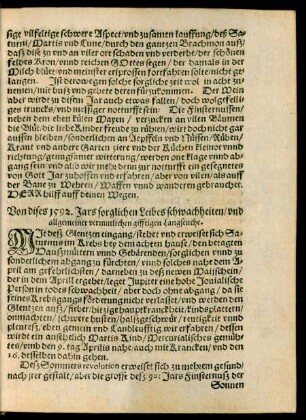 sige vilfeltige schwere Aspect/vnd zusamen lauffung/deß Sa-
turni/Martis vnd Lune/durch den gantzen Brachmon auß/
daß dise zů vnd an viler ort schaden vnd verderbe/der schönen
feldes Kron/vnnd reichen GOttes segen / der damals in der
Milch blüte/vnd meinster ersprossen fortfahren solte/nicht ge-
langen. Ist derowegen solche sorgliche zeit wol in acht zu-
nemen/mit buß vnd gebete deren fürzukommen. Der Wein
aber wirdt zu disem Jar auch etwas fallen/ doch wolgefelli-
ges truncks/vnd mässiger notturfft sein. Die Finsternussen/
neben dem eben küten Mayen / verzucken an vilen Bäumen
die Blüt/die liebe Kinder freude zu rühren/wirt doch nicht gar
aussen bleiben/sonderlichen an Depffeln vnd Nüssen/Rüben/
Kraut vnd andere Garten ziere vnd der Küchen kleinot vnnd
richtung/genugsamer witterung/werden one klage vnnd ab-
gang sein vnd also wir mehr denn zur notturfft ein gesegnetes
von Gott Jar zuhoffen vnd erfahren/aber von vilen/als auff
der Bane zu Wehren/ Waffen vnnd wanderen gebrauchet.
HERR hilff auff deinen Wegen.
Von dises 1592. Jars sorglichen Leibes schwachheiten/vnd
allgemeinen vermutlichen gifftigen Langseuche.
MIt deß Glentzen eingang/stehet vnd erweiset sich Sa-
turnus im Krebs bey dem achten hause/den betagten
Hausmütern vnnd Gebärenden/sorglichen vnnd zu
sonderlichem abgang zu fürchten/vnnd solches nahe dem A-
pril am gefehrlichsten/ darneben zu deß newen Mawschein/
der in dem Aprill ergehet/leget Jupiter eine hohe Jouialische
Person in todes schwachheit/ aber doch ohne abgang/ da sie
seines Krebsgangs förderung nicht verlasset/vnd werden im
Glentzen auß/fieber/hitzige hauptkranckheit/kindsplattern/
onmachten/ schwere husten/ halsgeschwär/ enigkeit vnnd
pleuresß/eben gemein vnd Landleufftig wir erfahren/ dessen
wirdt ein ansehlich Martis Kind/ Mercurialisches gemühs-
tes/vnd den 9. tag Aprilis nahe auch mit Krancken/vnd den
16. desselben dahin gehen.
Deß Sommers reuolution erweiset sich zu mehrem gesund/
nach jrer gestalt/aber die grosse deß 92. Jars Finsternuß der
Sonnen